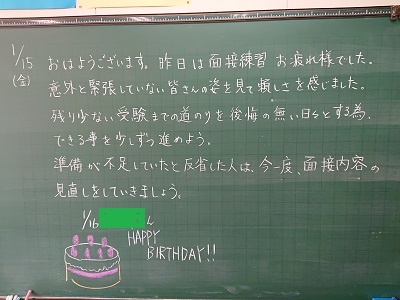 1/15
(金)
おはようございます。昨日は面接練習お疲れ様でした。
意外と緊張していない皆さんの姿を見て頼しさを感じました。
残り少ない受験までの道のりを後悔の無い日々とする為、
できる事を少しずつ進めよう。
準備が不足していたと反省した人は、今一度、面接内容の
見直しをしていきましょう。
1/16 ん
HAPPY
BIRTHDAY!!